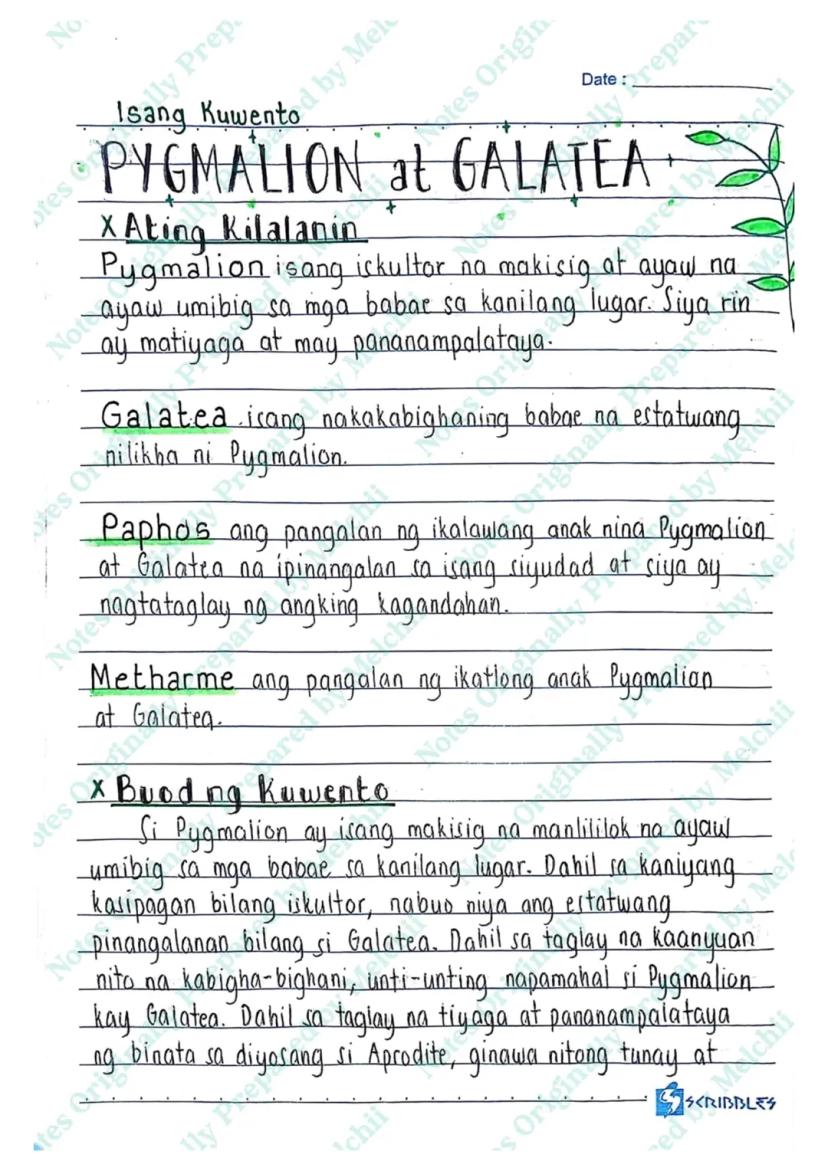 Date :
Isang Kuwento
PYGMALION at GALATEA
x Ating Kilalanin
Pygmalion isang iskultor na makisig at ayaw na
ayaw umibig sa mga babae sa kanilang lugar. Siya rin
ay matiyaga at may pananampalataya.
Galatea isang nakakabighaning babae na estatwang
nilikha ni Pygmalion.
Paphos ang pangalan ng ikalawang anak nina Pygmalion
at Galatea na ipinangalan sa isang siyudad at siya ay
nagtataglay ng angking kagandahan.
Metharme ang pangalan ng ikatlong anak Pygmalion
at Galatea.
x Buod ng Kuwento
Si Pygmalion ay isang makisig na manlililok na ayaw
umibig sa mga babae sa kanilang lugar. Dahil sa kaniyang
kasipagan bilang iskultor, nabuo niya ang estatwang
pinangalanan bilang si Galatea. Dahil sa taglay na kaanyuan
nito na kabigha-bighani, unti-unting napamahal si Pygmalion
kay Galatea. Dahil sa taglay na tiyaga at pananampalataya
ng binata sa diyosang si Aprodite, ginawa nitong tunay at
SCRIBBLES
Notes Originally Prepared by Melchii